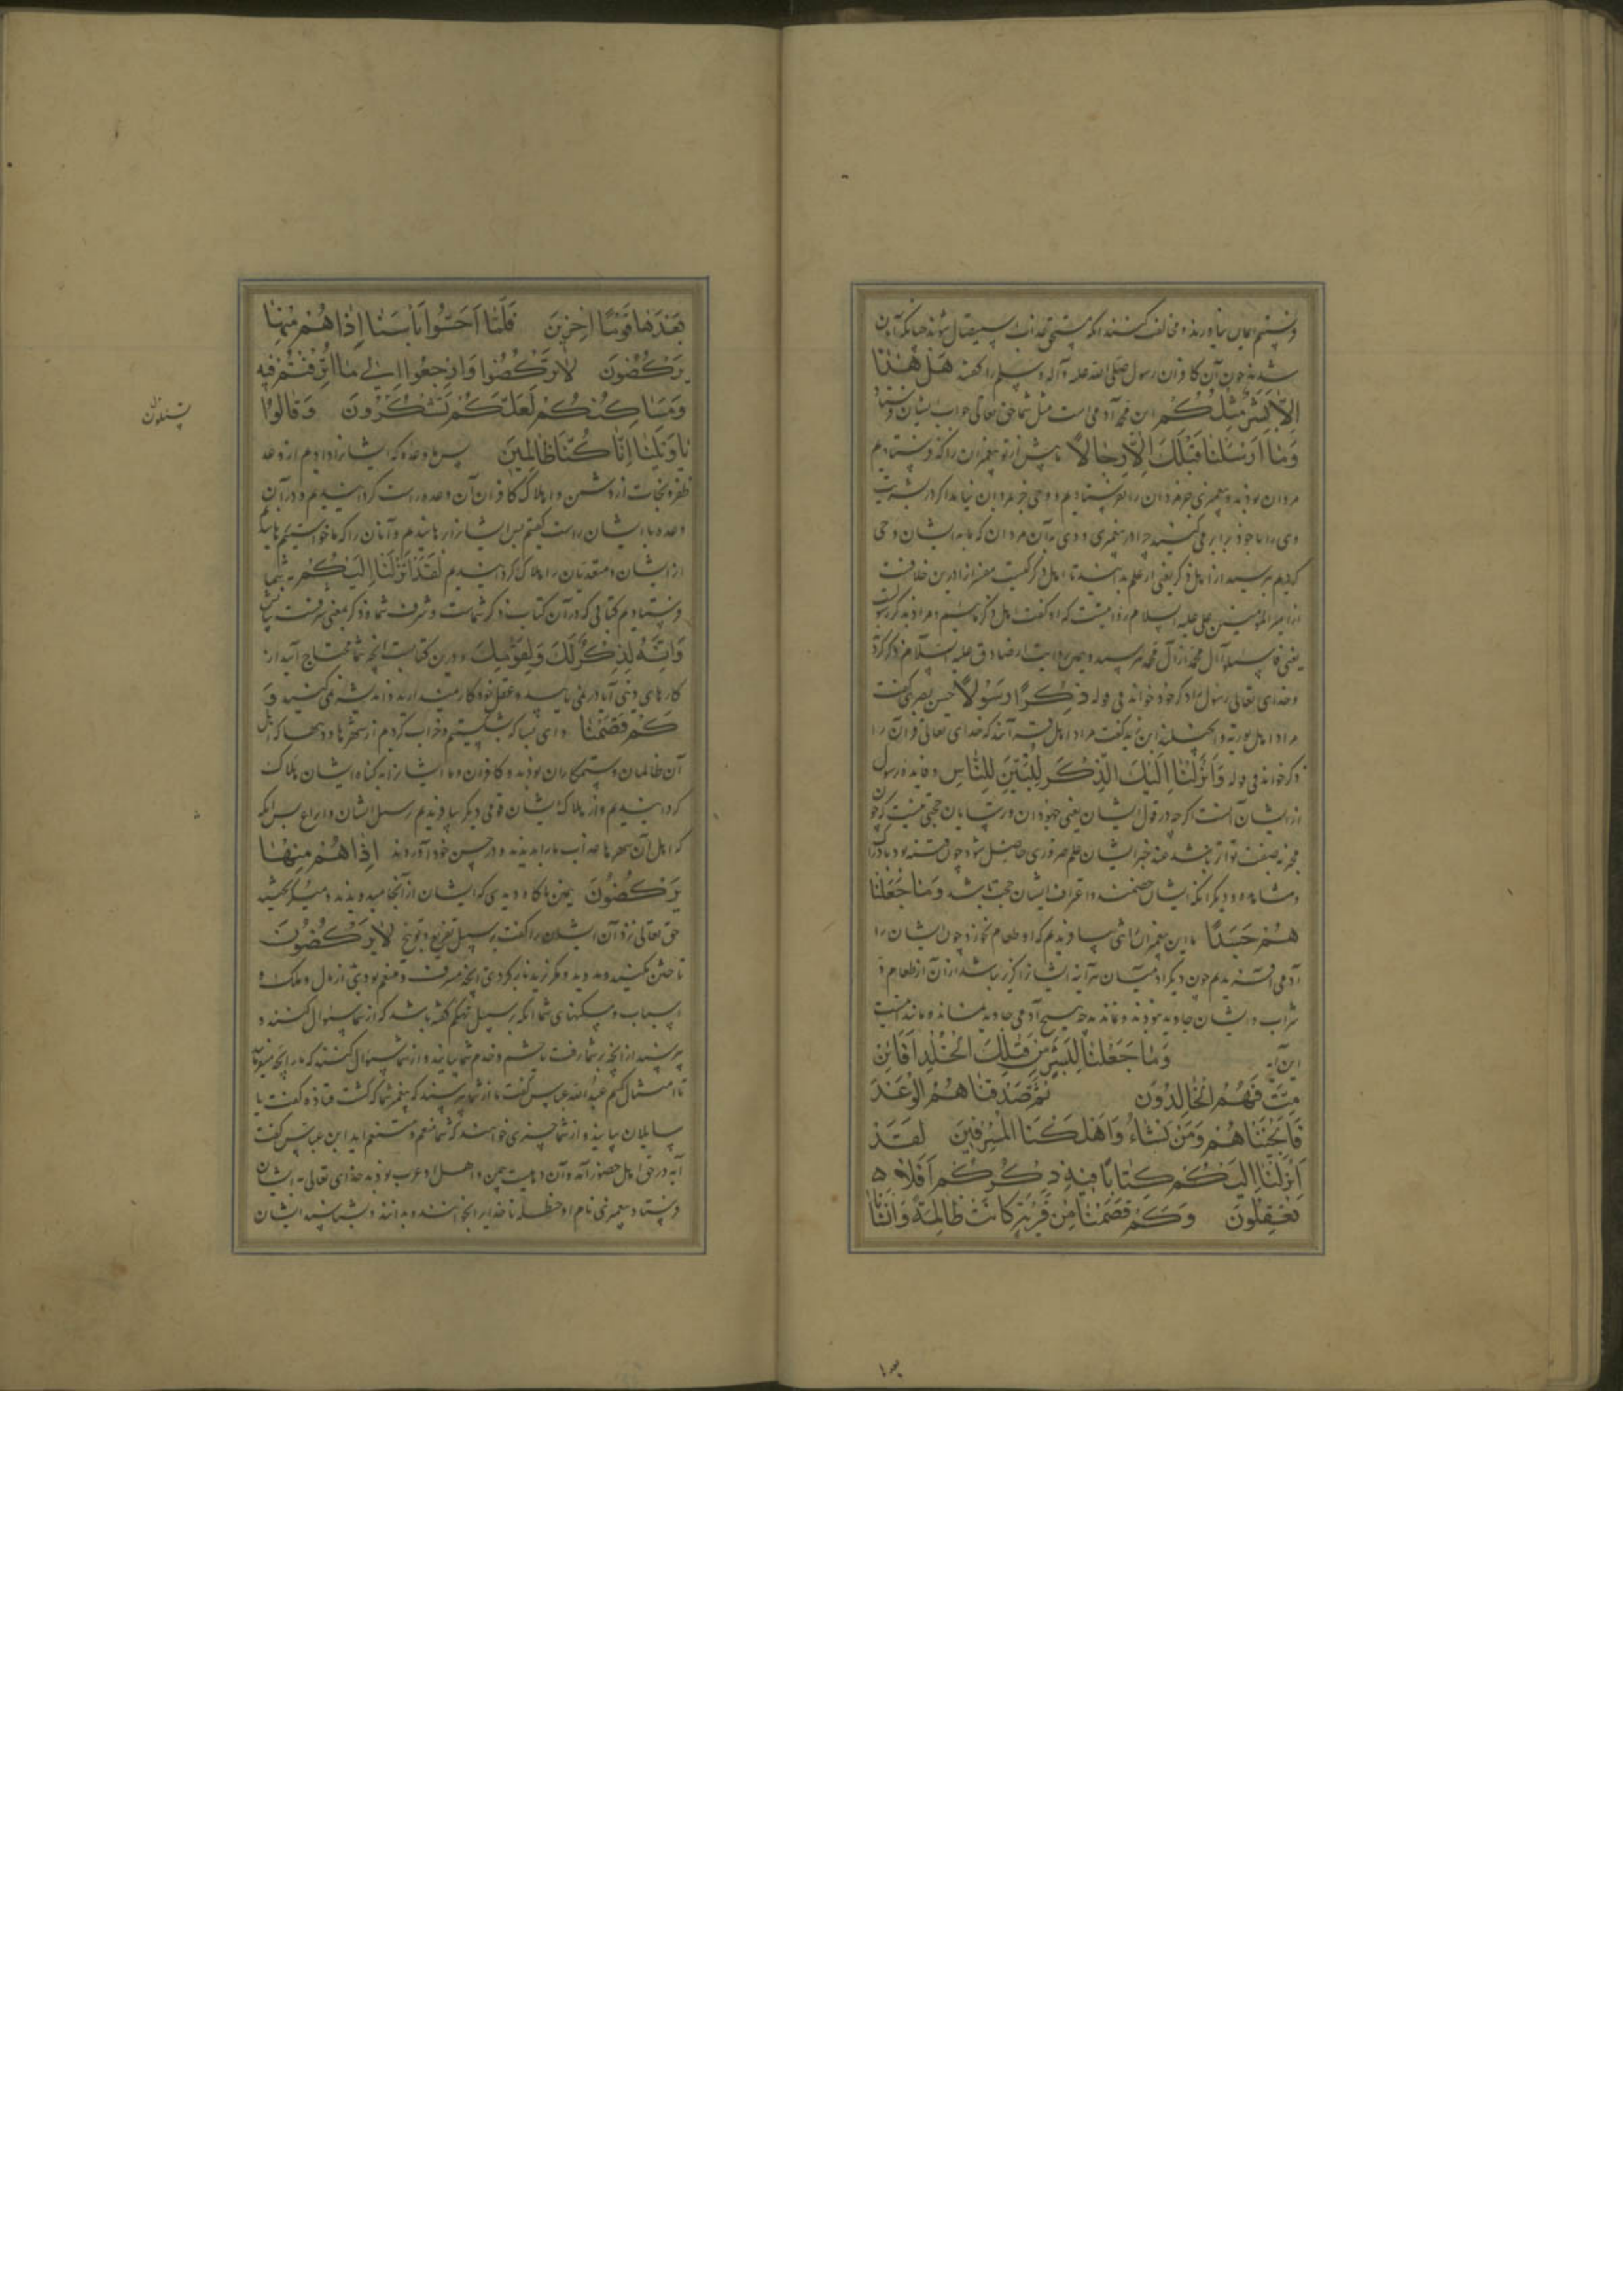 فرستم ایمان نیاورند و مخالفت کنند آنکه مستحق عذاب استیصال شوند چنانکه آنان
شدند چون آن کافران رسول صلی الله علیه و آله و سلم را گفتند هَل هٰذا
اِلّا بَشَرٌ مِثلُکُم این محمد آدمی است مثل شما حق تعالی جواب ایشان
وَ مٰا اَرسَلنٰا قَبلَکَ اِلّا رِجٰالاً ما پیش از تو پیغمبران را که فرستادیم
مردان بودند و پیغمبری جز مردان را نفرستادیم و وحی جز بمردان نیامد اگر در بشریت
وی را با خود برابر می کنید چرا در پیغمبری و وحی به آن مردان که ما به ایشان وحی
کردیم بپرسید از اهل ذکر یعنی از اهل علم بدانید تا اهل ذکر کیست مفسران را درین خلافست
از امیر المؤمنین علی علیه السلام روایتست که او گفت اهل ذکر مائیم و مراد بذکر رسول
یعنی فاسئلوا آل محمد از آل محمد بپرسید و همین روایت از صادق علیه السلام ذکر کرد
و خدای تعالی رسول را ذکر خود خواند فی قوله ذِکراً رَسُولاً حسن بصری گفت
مراد اهل توریة و انجیلند ابن زید گفت مراد اهل قرآنند که خدای تعالی قرآن را
ذکر خواند فی قوله وَ اَنزَلنٰا اِلَیکَ الذِّکرَ لِتُبَیِّنَ لِلنّٰاسِ و فایده رسول
از ایشان آنست اگرچه در قول ایشان یعنی جهودان و ترسایان حجتی نیست که چون
مخبر به صفت تواتر باشد عند خبر ایشان علم ضروری حاصل شود چون فتنه بود
و مشاهده و دیگر آنکه ایشان خصمند و اعتراف ایشان حجت باشد وَ مٰا جَعَلنٰا
هُم جَسَداً ما این پیغمبران را شخصی نیافریدیم که او طعام نخورد چون ایشان را
آدمی آفریدیم چون دیگر آدمیان هرآینه ایشان را گزیر نباشد از آن از طعام و
شراب و ایشان جاوید نبودند و نماندند چه هیچ آدمی جاوید نماند و مانند اینست
این آیه وَ مٰا جَعَلنٰا لِبَشَرٍ مِن قَبلِکَ الخُلدَ اَفَاِئِن
مِتَّ فَهُمُ الخٰالِدُونَ ثُمَّ صَدَقنٰاهُمُ الوَعدَ
فَاَنجَینٰاهُم وَ مَن نَشٰاءُ وَ اَهلَکنَا المُسرِفِینَ لَقَد
اَنزَلنٰا اِلَیکُم کِتٰاباً فِیهِ ذِکرُکُم اَفَلاٰ
تَعقِلُونَ وَ کَم قَصَمنٰا مِن قَریَةٍ کٰانَت ظٰالِمَةً وَ اَنشَأنٰا
بَعدَهٰا قَوماً اٰخَرِینَ فَلَمّٰا اَحَسُّوا بَأسَنٰا اِذٰا هُم مِنهٰا
یَرکُضُونَ لاٰ تَرکُضُوا وَ ارجِعُوا اِلیٰ مٰا اُترِفتُم فِیهِ
وَ مَسٰاکِنِکُم لَعَلَّکُم تَشکُرُونَ وَ قٰالُوا
تسئلون
یٰا وَیلَنٰا اِنّٰا کُنّٰا ظٰالِمِینَ پس ما وعده که ایشان را دادیم از وعد
ظفر و نجات از دشمن و اهلاک کافران آن وعده راست گردانیدیم و در آن
وعده با ایشان راست گفتیم پس ایشان را برهانیدیم و آنان را که ما خواستیم
از ایشان و متعدیان را هلاک گردانیدیم لَقَد اَنزَلنٰا اِلَیکُم به شما
فرستادیم کتابی که در آن کتاب ذکر شماست و شرف شما و ذکر بمعنی شرفست
وَ اِنَّهُ لَذِکرٌ لَکَ وَ لِقَومِکَ و درین کتابست آنچه شما محتاج آیید از
کارهای دینی آیا در نمی یابید و عقل خود کار نمی دارید و اندیشه نمی کنید وَ
کَم قَصَمنٰا و ای بسا که بشکستیم و خراب کردیم از شهرها و دیهها که اهل
آن ظالمان و ستمکاران بودند و کافران و ما ایشان را به گناه ایشان هلاک
گردانیدیم و از هلاک ایشان قومی دیگر بیافریدیم بر سبیل انشا و ابداع پس آنکه
که اهل آن شهرها عذاب ما را بدیدند و در حس خود آوردند اِذٰا هُم مِنهٰا
یَرکُضُونَ همین ناگاه دیدی که ایشان از آنجا میدویدند و میگریختند
حق تعالی نزد آن ایشان را گفت بر سبیل تقریع و توبیخ لاٰ تَرکُضُونَ
تاختن مکنید و مدوید و مگریزید و باز گردید با آنچه مترف و منعم بودید از مال و ملک و
اسباب و مسکنهای شما آنکه بر سبیل تهکم گفته باشد که از شما سئوال کنند و
بپرسند از آنچه بر شما رفت یا حشم و خدم شما بیایند و از شما سئوال کنند که ما را چه میفرمایید
تا امتثال کنیم عبد الله عباس گفت تا از شما بپرسند که پیغمبر شما که کشت قتاده گفت یا
سایلان بیایند و از شما چیزی خواهند که شما منعم و متنعم اید ابن عباس گفت
آیه در حق اهل حضور آمد و آن دهیست بیمن و اهل او عرب بودند خدای تعالی به ایشان
فرستاد پیغمبری نام او حنظله تا خدای را بخوانند و بدانند و بشناسند ایشان